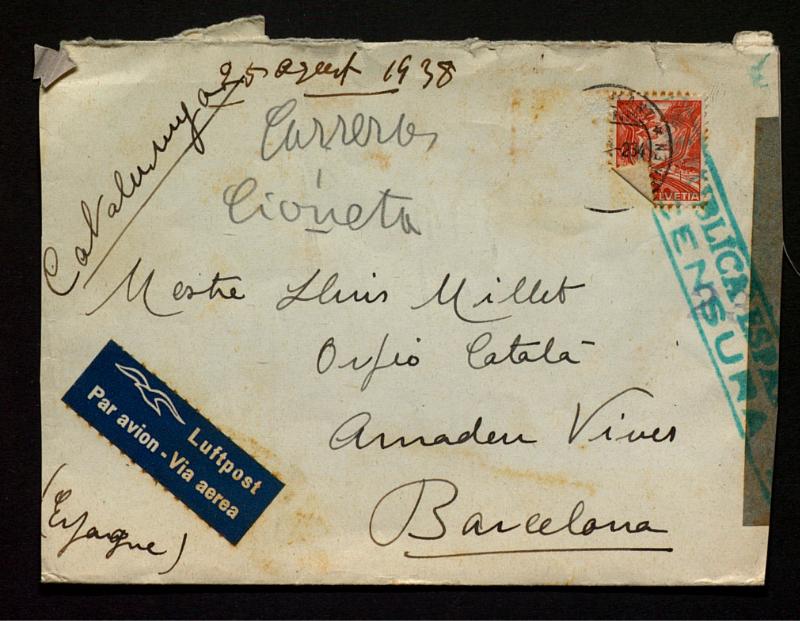 25 agost 1938
Catalunya
Carreras
i
Cioneta
HELVETIA
REPÚBLICA ESPA
CENSURA
Mestre Lluis Millet
Orfeó Català
Amadeu Vives
Barcelona
(Espagne)
Luftpost
Par avion - Via aerea